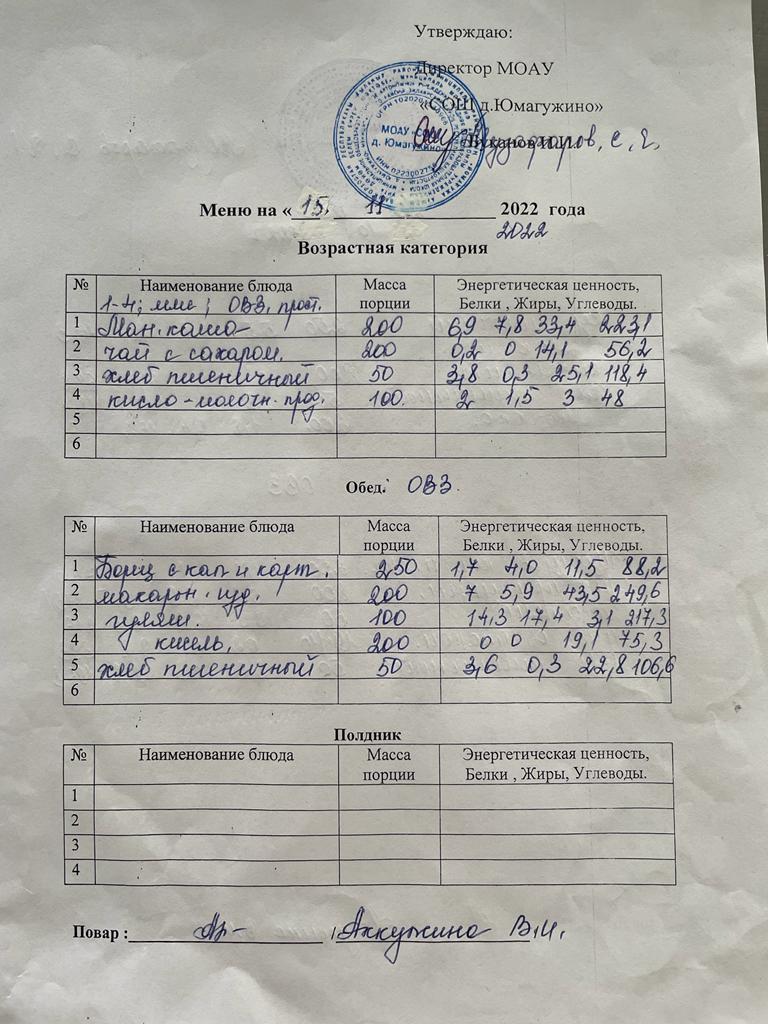 Утверждаю:
Директор МОАУ
«СОШ д.Юмагужино»
МОАУ «СОШ
д. Юмагужино»
Меню на «15. 11 2022 года
2022
Возрастная категория
№ Наименование блюда Масса порции Энергетическая ценность, Белки , Жиры, Углеводы.
1-4; ОВЗ.
1 Ман. каша 200 6,9 7,8 33,4 223,1
2 чай с сахаром. 200 0,2 0 14,1 56,2
3 хлеб пшеничный 50 3,8 0,3 25,1 118,4
4 кисло-молочн. прод. 100. 2 1,5 3 48
5
6
Обед. ОВЗ.
№ Наименование блюда Масса порции Энергетическая ценность, Белки , Жиры, Углеводы.
1 Борщ с кап и карт. 250 1,7 4,0 11,5 88,2
2 макарон. изд. 200 7 5,9 43,5 249,6
3 гуляш. 100 14,3 17,4 3,1 217,3
4 кисель. 200 0 0 19,1 75,3
5 хлеб пшеничный 50 3,6 0,3 22,8 106,6
6
Полдник
№ Наименование блюда Масса порции Энергетическая ценность, Белки , Жиры, Углеводы.
1
2
3
4
Повар : / Аккужина В.И.